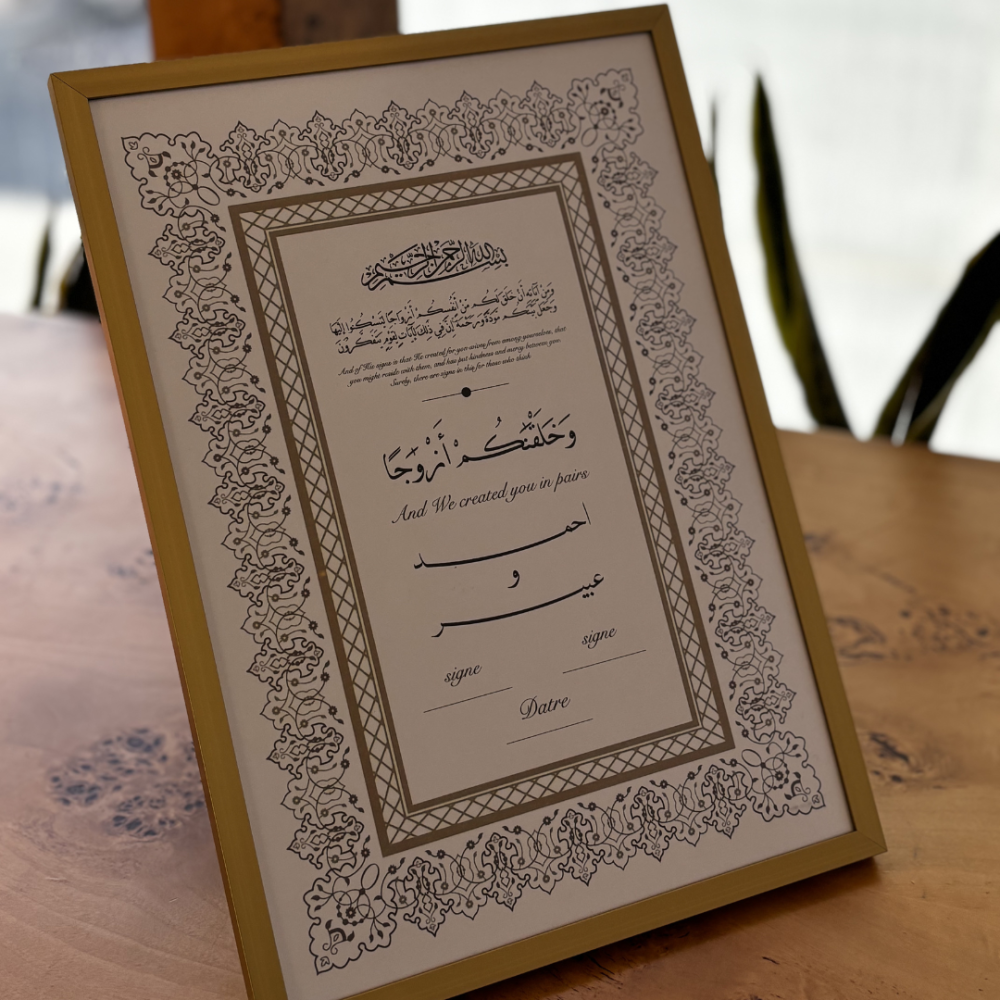 بسم الله الرحمن الرحيم
وَمِنْ آيَاتِهِ أَنْ خَلَقَ لَكُم مِّنْ أَنْفُسِكُمْ أَزْوَاجًا لِّتَسْكُنُوا إِلَيْهَا
وَجَعَلَ بَيْنَكُم مَّوَدَّةً وَرَحْمَةً إِنَّ فِي ذَٰلِكَ لَآيَاتٍ لِّقَوْمٍ يَتَفَكَّرُونَ
And of His signs is that He created for you wives from among yourselves, that
you might reside with them, and has put kindness and mercy between you.
Surely, there are signs in this for those who think
وَخَلَقْنَٰكُمْ أَزْوَٰجًا
And We created you in pairs
احمد
و
عبير
signe
signe
Datre